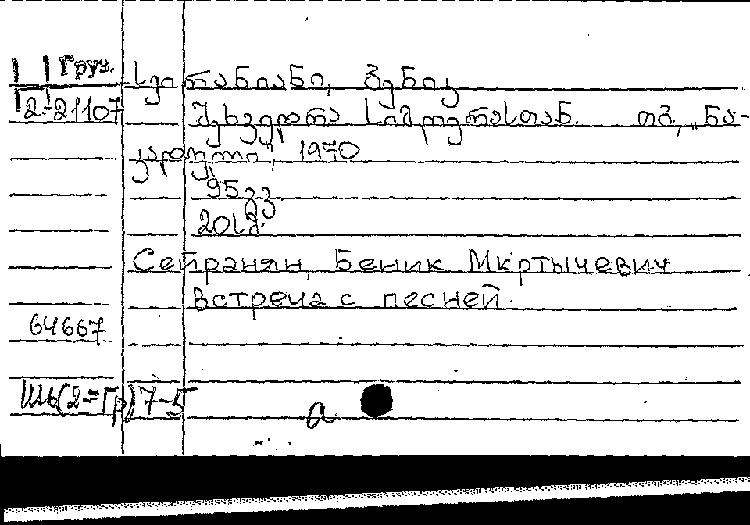 Груз.
სეირანიანი, ბენიკ
2-21107 შეხვედრა სიმღერასთან. თბ., „ნა-
კადული“, 1970
95 გვ.
20 კ.
Сейранян, Беник Мкртычевич
Встреча с песней.
64667
Ш6(2=Гр)7-5
a